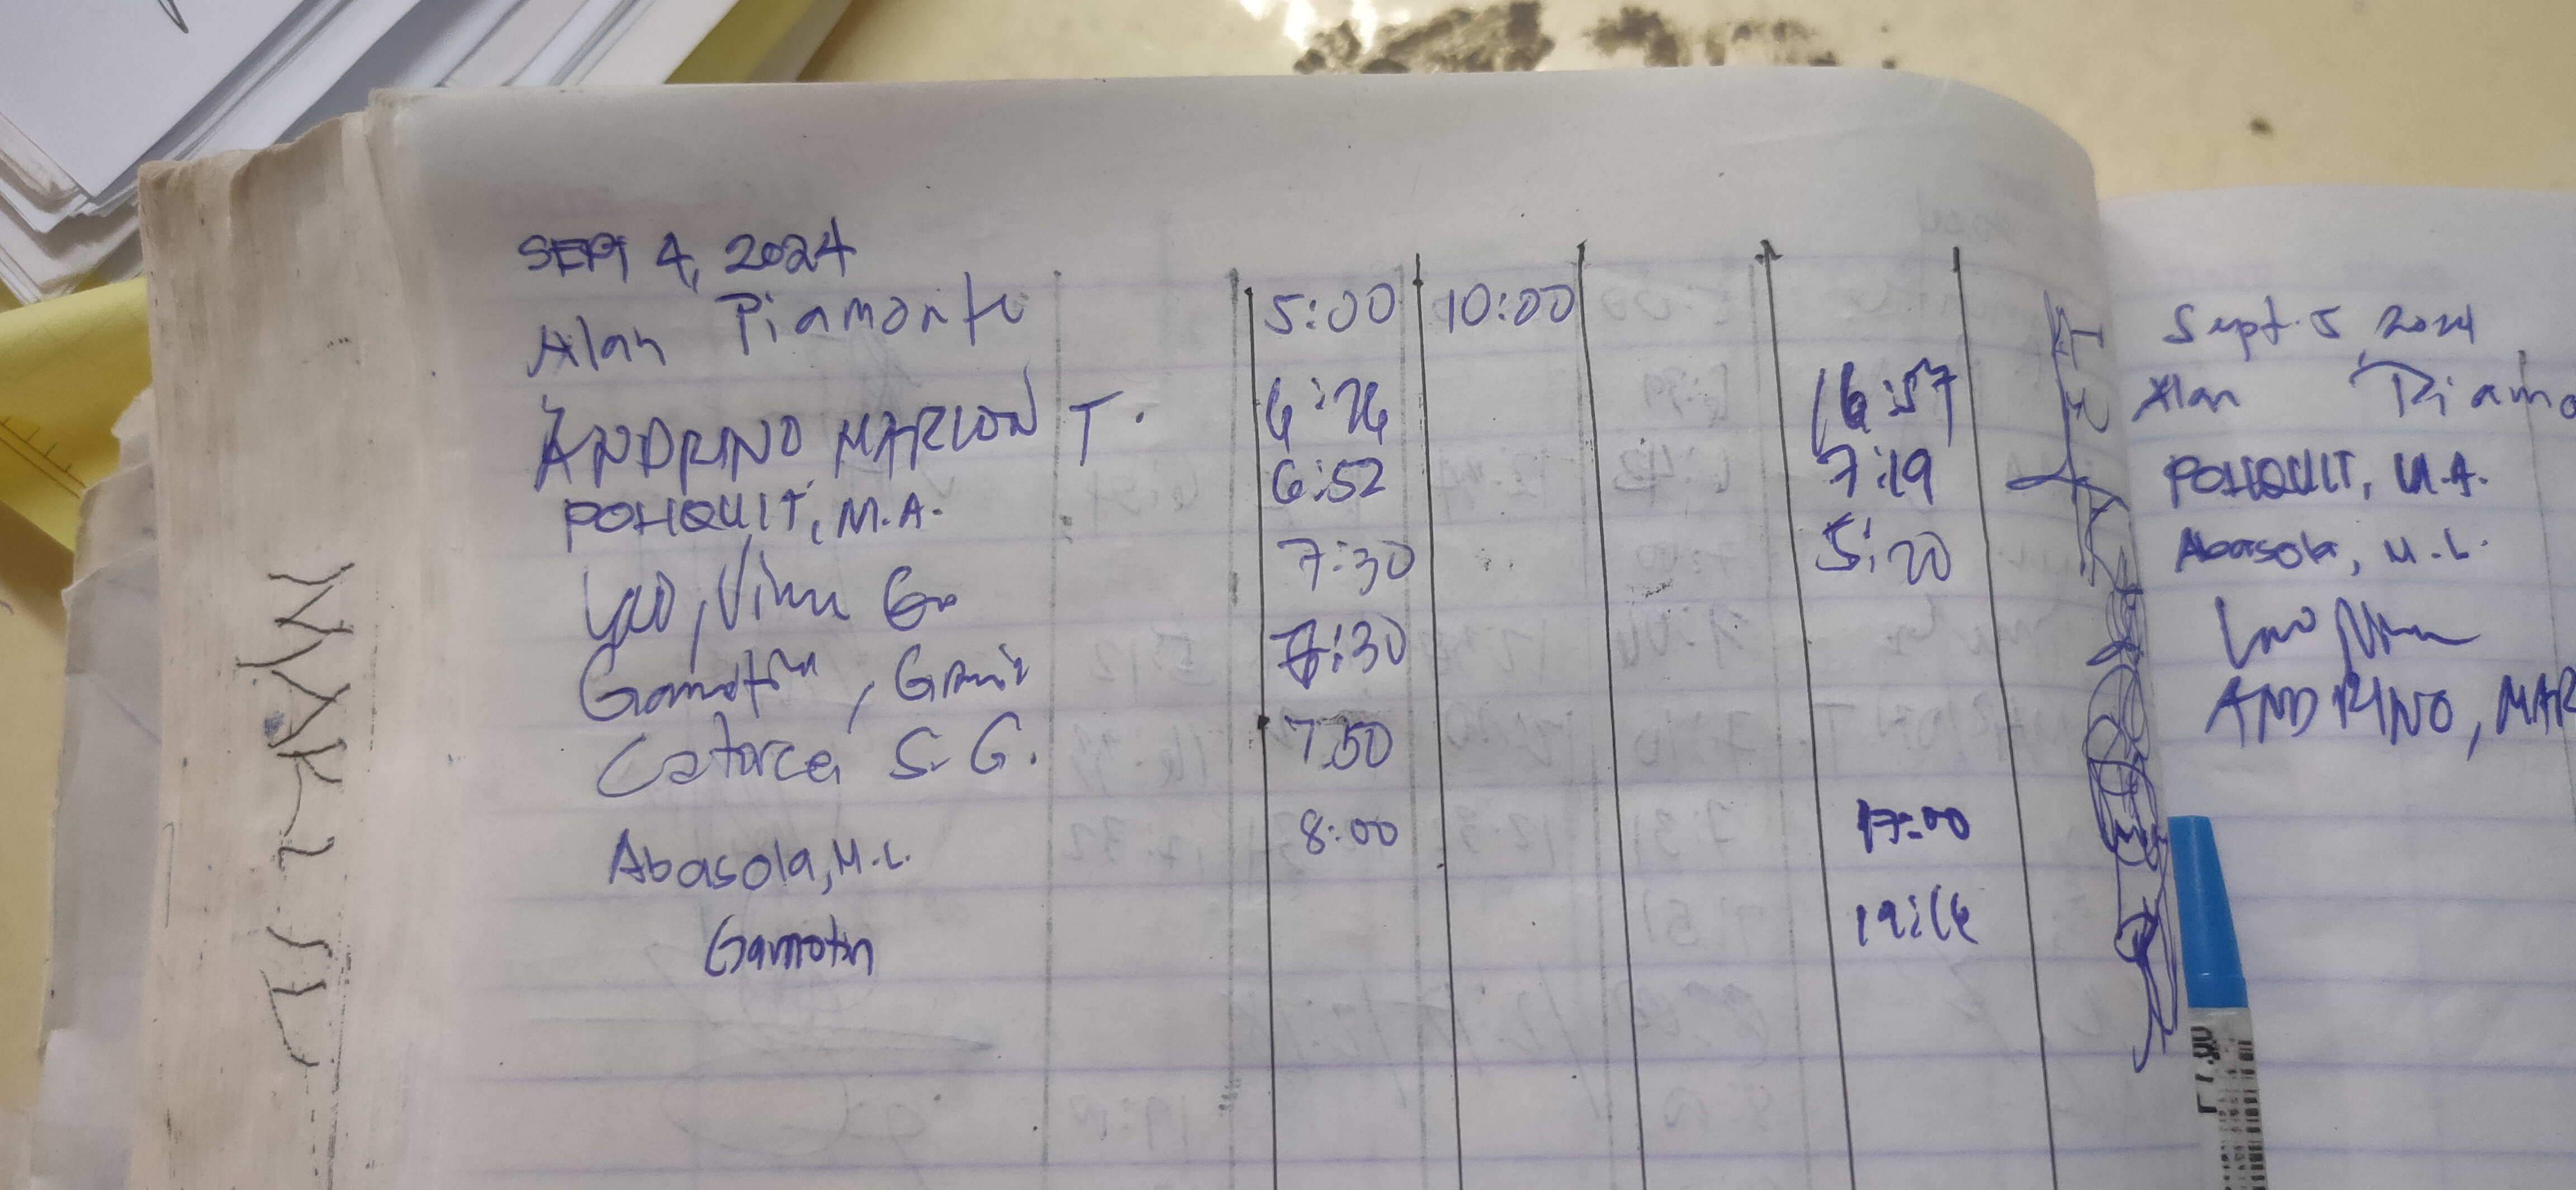 SEPT 4, 2024
Alan Piamonte 5:00 10:00
ANDRINO, MARLON T. 6:26 16:57
POHQUIT, M.A. 6:52 7:19
7:30 5:20
Gamotin, 7:30
Catorce, S. G. 7:50
Abasola, M.L. 8:00 17:00
Gamotin 19:16
Sept. 5, 2024
Alan Piamo
POHQUIT, M.A.
Abasola, M.L.
ANDRINO, MAR